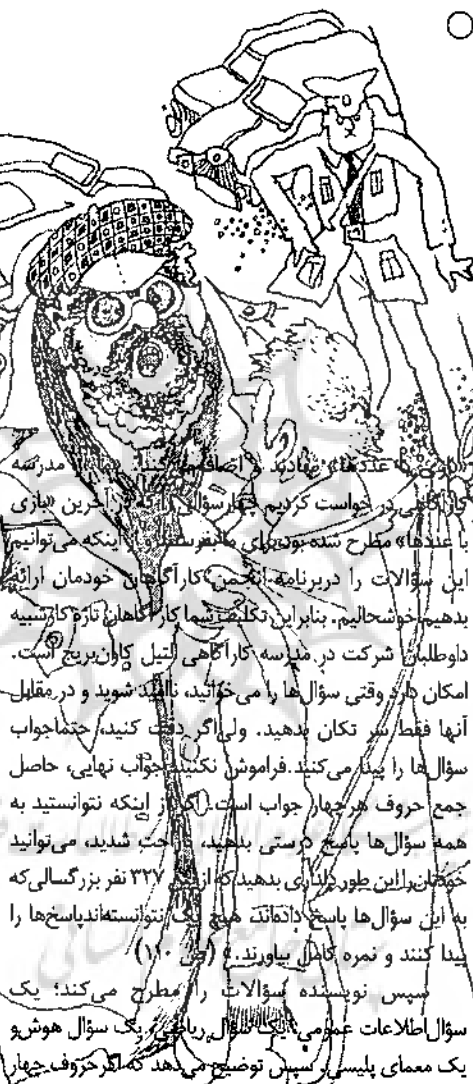 «بازی با عددها» می‌دادند و اضافه می‌کند: «ما از مدرسه
کارآگاهی درخواست کردیم چهار سؤالی را که در آخرین «بازی
با عددها» مطرح شده بود، برای ما بفرستند. از اینکه می‌توانیم
این سؤالات را در برنامه انجمن کارآگاهان خودمان ارائه
بدهیم، خوشحالیم. بنابراین تکلیف شما کارآگاهان تازه‌کار شبیه
داوطلبان شرکت در مدرسه کارآگاهی لیتل کاون‌بریج است.
امکان دارد وقتی سؤال‌ها را می‌خوانید، ناامید شوید و در مقابل
آنها فقط سر تکان بدهید. ولی اگر دقت کنید، حتماجواب
سؤال‌ها را پیدا می‌کنید. فراموش نکنید جواب نهایی، حاصل
جمع حروف هر چهار جواب است. اگر از اینکه نتوانستید به
همه سؤال‌ها پاسخ درستی بدهید، ناراحت شدید، می‌توانید
خودتان را این طور دلداری بدهید که از بین ۳۲۷ نفر بزرگسالی که
به این سؤال‌ها پاسخ داده‌اند، هیچ یک نتوانسته‌اندپاسخ‌ها را
پیدا کنند و نمره کامل بیاورند.» (ص ۱۱۰)
سپس نویسنده سؤالات را مطرح می‌کند؛ یک
سؤال اطلاعات عمومی، یک سؤال ریاضی، یک سؤال هوش و
یک معمای پلیسی. سپس توضیح می‌دهد که اگر حروف چهار